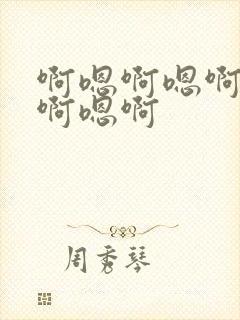 啊嗯啊嗯啊
啊嗯啊
周秀琴